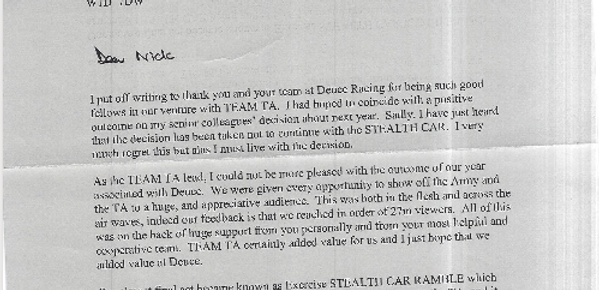 W1D
Dear Nick
I put off writing to thank you and your team at Deuce Racing for being such good
fellows in our venture with TEAM TA. I had hoped to coincide with a positive
outcome on my senior colleagues' decision about next year. Sadly, I have just heard
that the decision has been taken not to continue with the STEALTH CAR. I very
much regret this but alas I must live with the decision.
As the TEAM TA lead, I could not be more pleased with the outcome of our year
associated with Deuce. We were given every opportunity to show off the Army and
the TA to a huge, and appreciative audience. This was both in the flesh and across the
air waves, indeed our feedback is that we reached in order of 27m viewers. All of this
was on the back of huge support from you personally and from your most helpful and
cooperative team. TEAM TA certainly added value for us and I just hope that we
added value at Deuce.
final act became known as Exercise STEALTH CAR RAMBLE which